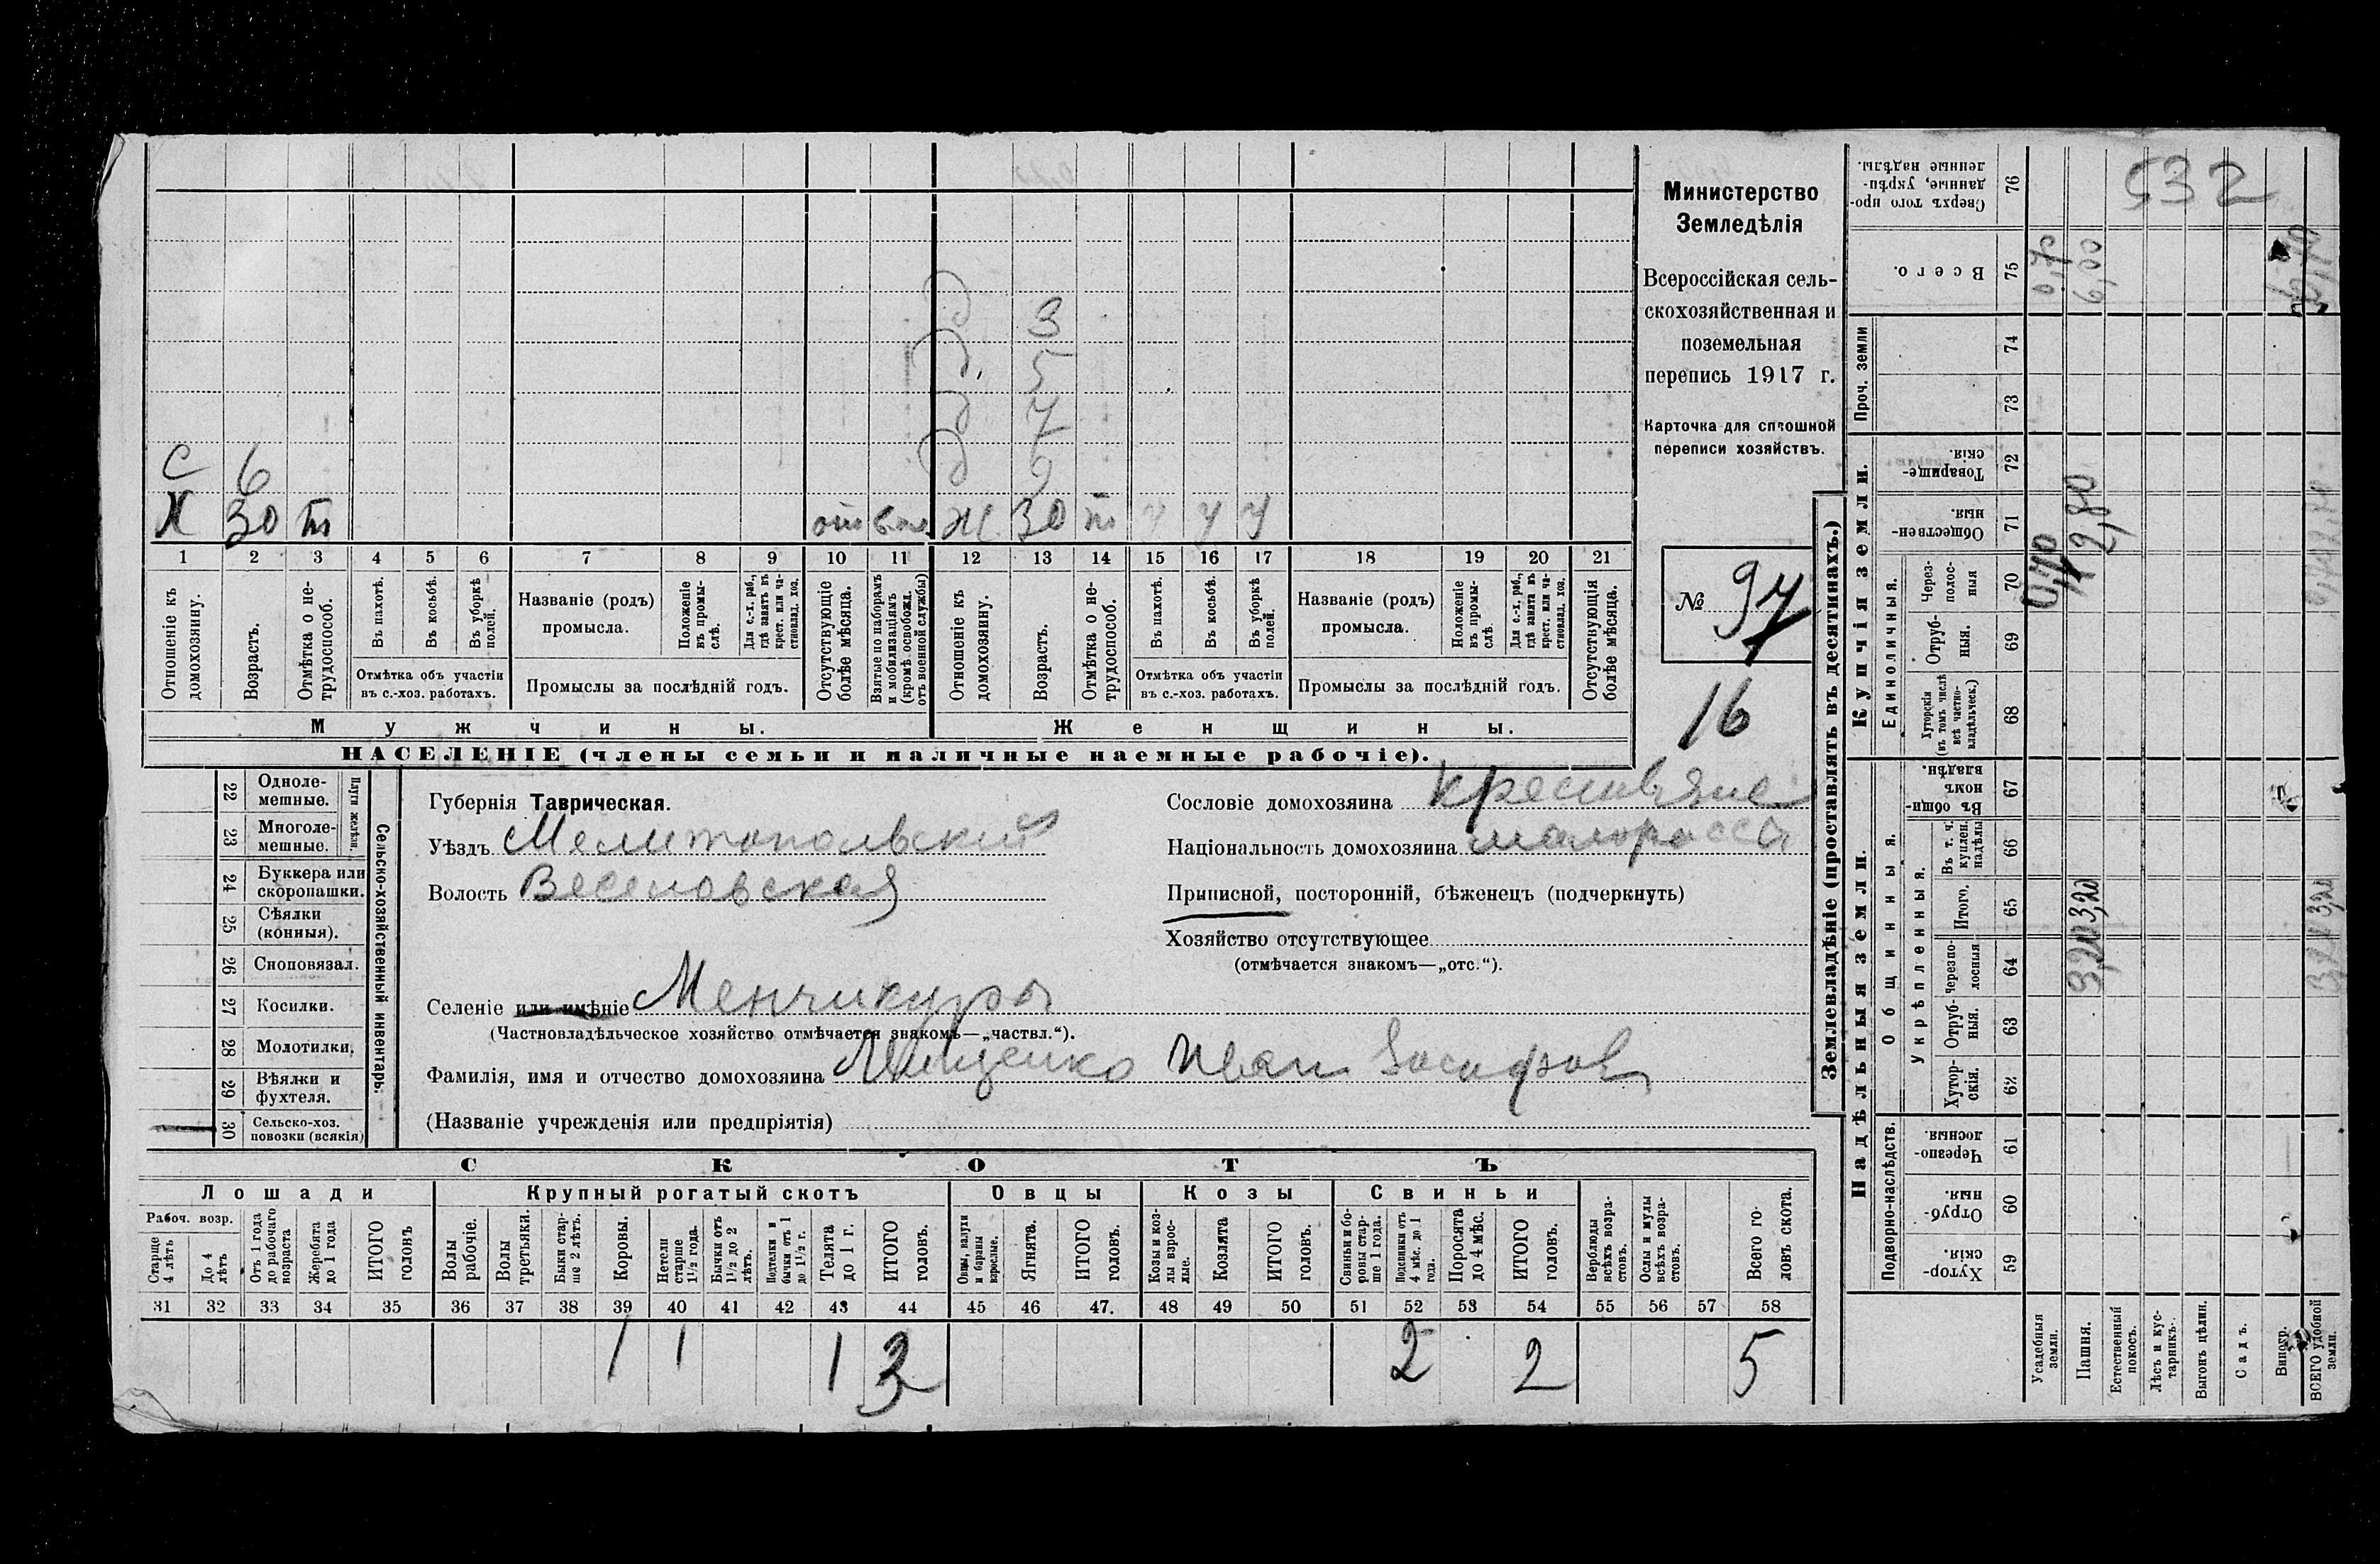 532
Министерство
Земледѣлія
Всероссійская сель-
скохозяйственная и
поземельная
перепись 1917 г.
Карточка для сплошной
переписи хозяйствъ.
№ 97
16
д 3
д 5
д 7
с 6 д 9
Х 30 т Ж 30 т у у у
1 2 3 4 5 6 7 8 9 10 11 12 13 14 15 16 17 18 19 20 21
Отношеніе къ домохозяину.
Возрастъ.
Отмѣтка о не-трудоспособ.
Въ пахотѣ.
Въ косьбѣ.
Въ уборкѣ полей.
Отмѣтка объ участіи
въ с.-хоз. работахъ.
Названіе (родъ)
промысла.
Положеніе въ промы-слѣ.
Для с.-х. раб., гдѣ занятъ въ крест. или ча-стновлад. хоз.
Промыслы за послѣдній годъ.
Отсутствующіе болѣе мѣсяца.
Взятые по наборамъ и мобилизаціямъ (кромѣ освобожд. отъ военной службы)
Отношеніе къ домохозяину.
Возрастъ.
Отмѣтка о не-трудоспособ.
Въ пахотѣ.
Въ косьбѣ.
Въ уборкѣ полей.
Отмѣтка объ участіи
въ с.-хоз. работахъ.
Названіе (родъ)
промысла.
Положеніе въ промы-слѣ
Для с.-х. раб., гдѣ занята въ крест. или ча-стновлад. хоз.
Промыслы за послѣдній годъ.
Отсутствующія болѣе мѣсяца.
Мужчины.
Женщины.
НАСЕЛЕНІЕ (члены семьи и наличные наемные рабочіе).
22 Одноле-
мешные.
23 Многоле-
мешные.
Плуги желѣзн.
24 Буккера или
скоропашки.
25 Сѣялки
(конныя).
26 Сноповязал.
27 Косилки.
28 Молотилки.
29 Вѣялки и
фухтеля.
30 Сельско-хоз.
повозки (всякія)
Сельско-хозяйственный инвентарь.
Губернія Таврическая.
Уѣздъ Мелитопольский
Волость Веселовская
Сословіе домохозяина крестьяне
Національность домохозяина малороссы
Приписной, посторонній, бѣженецъ (подчеркнуть)
Хозяйство отсутствующее
(отмѣчается знакомъ—„отс.“).
Селеніе или имѣніе Менчикуры
(Частновладѣльческое хозяйство отмѣчается знакомъ—„частвл.“).
Фамилія, имя и отчество домохозяина Мищенко Иван Иосифов
(Названіе учрежденія или предпріятія)
СКОТЪ
Лошади
Крупный рогатый скотъ
Овцы
Козы
Свиньи
Рабоч. возр.
Старше 4 лѣтъ
До 4 лѣтъ
Отъ 1 года до рабочаго возраста
Жеребята до 1 года
ИТОГО головъ
Волы рабочіе.
Волы третьяки.
Быки стар-ше 2 лѣтъ.
Коровы.
Нетели старше 1½ года.
Бычки отъ 1½ до 2 лѣтъ.
Подтелки и бычки отъ 1 до 1½ г.
Телята до 1 г.
ИТОГО головъ.
Овцы, валухи и бараны взрослые.
Ягнята.
ИТОГО головъ.
Козы и коз-лы взрос-лые.
Козлята
ИТОГО головъ.
Свиньи и бо-ровы стар-ше 1 года.
Подсвинки отъ 4 мѣс. до 1 года.
Поросята до 4 мѣс.
ИТОГО головъ.
Верблюды всѣхъ возра-стовъ.
Ослы и мулы всѣхъ возра-стовъ.
Всего го-ловъ скота.
31 32 33 34 35 36 37 38 39 40 41 42 43 44 45 46 47. 48 49 50 51 52 53 54 55 56 57 58
1 1 1 3 2 2 5
Землевладѣніе (проставлять въ десятинахъ.)
Надѣльныя земли.
Купчія земли.
Проч. земли
Подворно-наслѣдств.
Общинныя.
Укрѣпленныя.
Единоличныя.
Хутор-скія. 59
Отруб-ныя. 60
Черезпо-лосныя. 61
Хутор-скія. 62
Отруб-ныя. 63
Черезпо-лосныя 64
Итого. 65
Въ т. ч. куплен. надѣлы 66
Въ общи-номъ владѣн. 67
Хуторскія (въ томъ числѣ всѣ частно-владѣльческ.) 68
Отруб-ныя. 69
Через-полос-ныя 70
Обществен-ныя. 71
Товарище-скія. 72
73
74
Всего. 75
Сверхъ того про-данные, укрѣп-ленные надѣлы. 76
Усадебныя земли. 0,70
Пашня. 3,20 3,20 2,80 6,00
Естественный покосъ.
Лѣсъ и кус-тарникъ.
Выгонъ цѣлин.
Садъ.
Виногр.
ВСЕГО удобной земли. 3,20